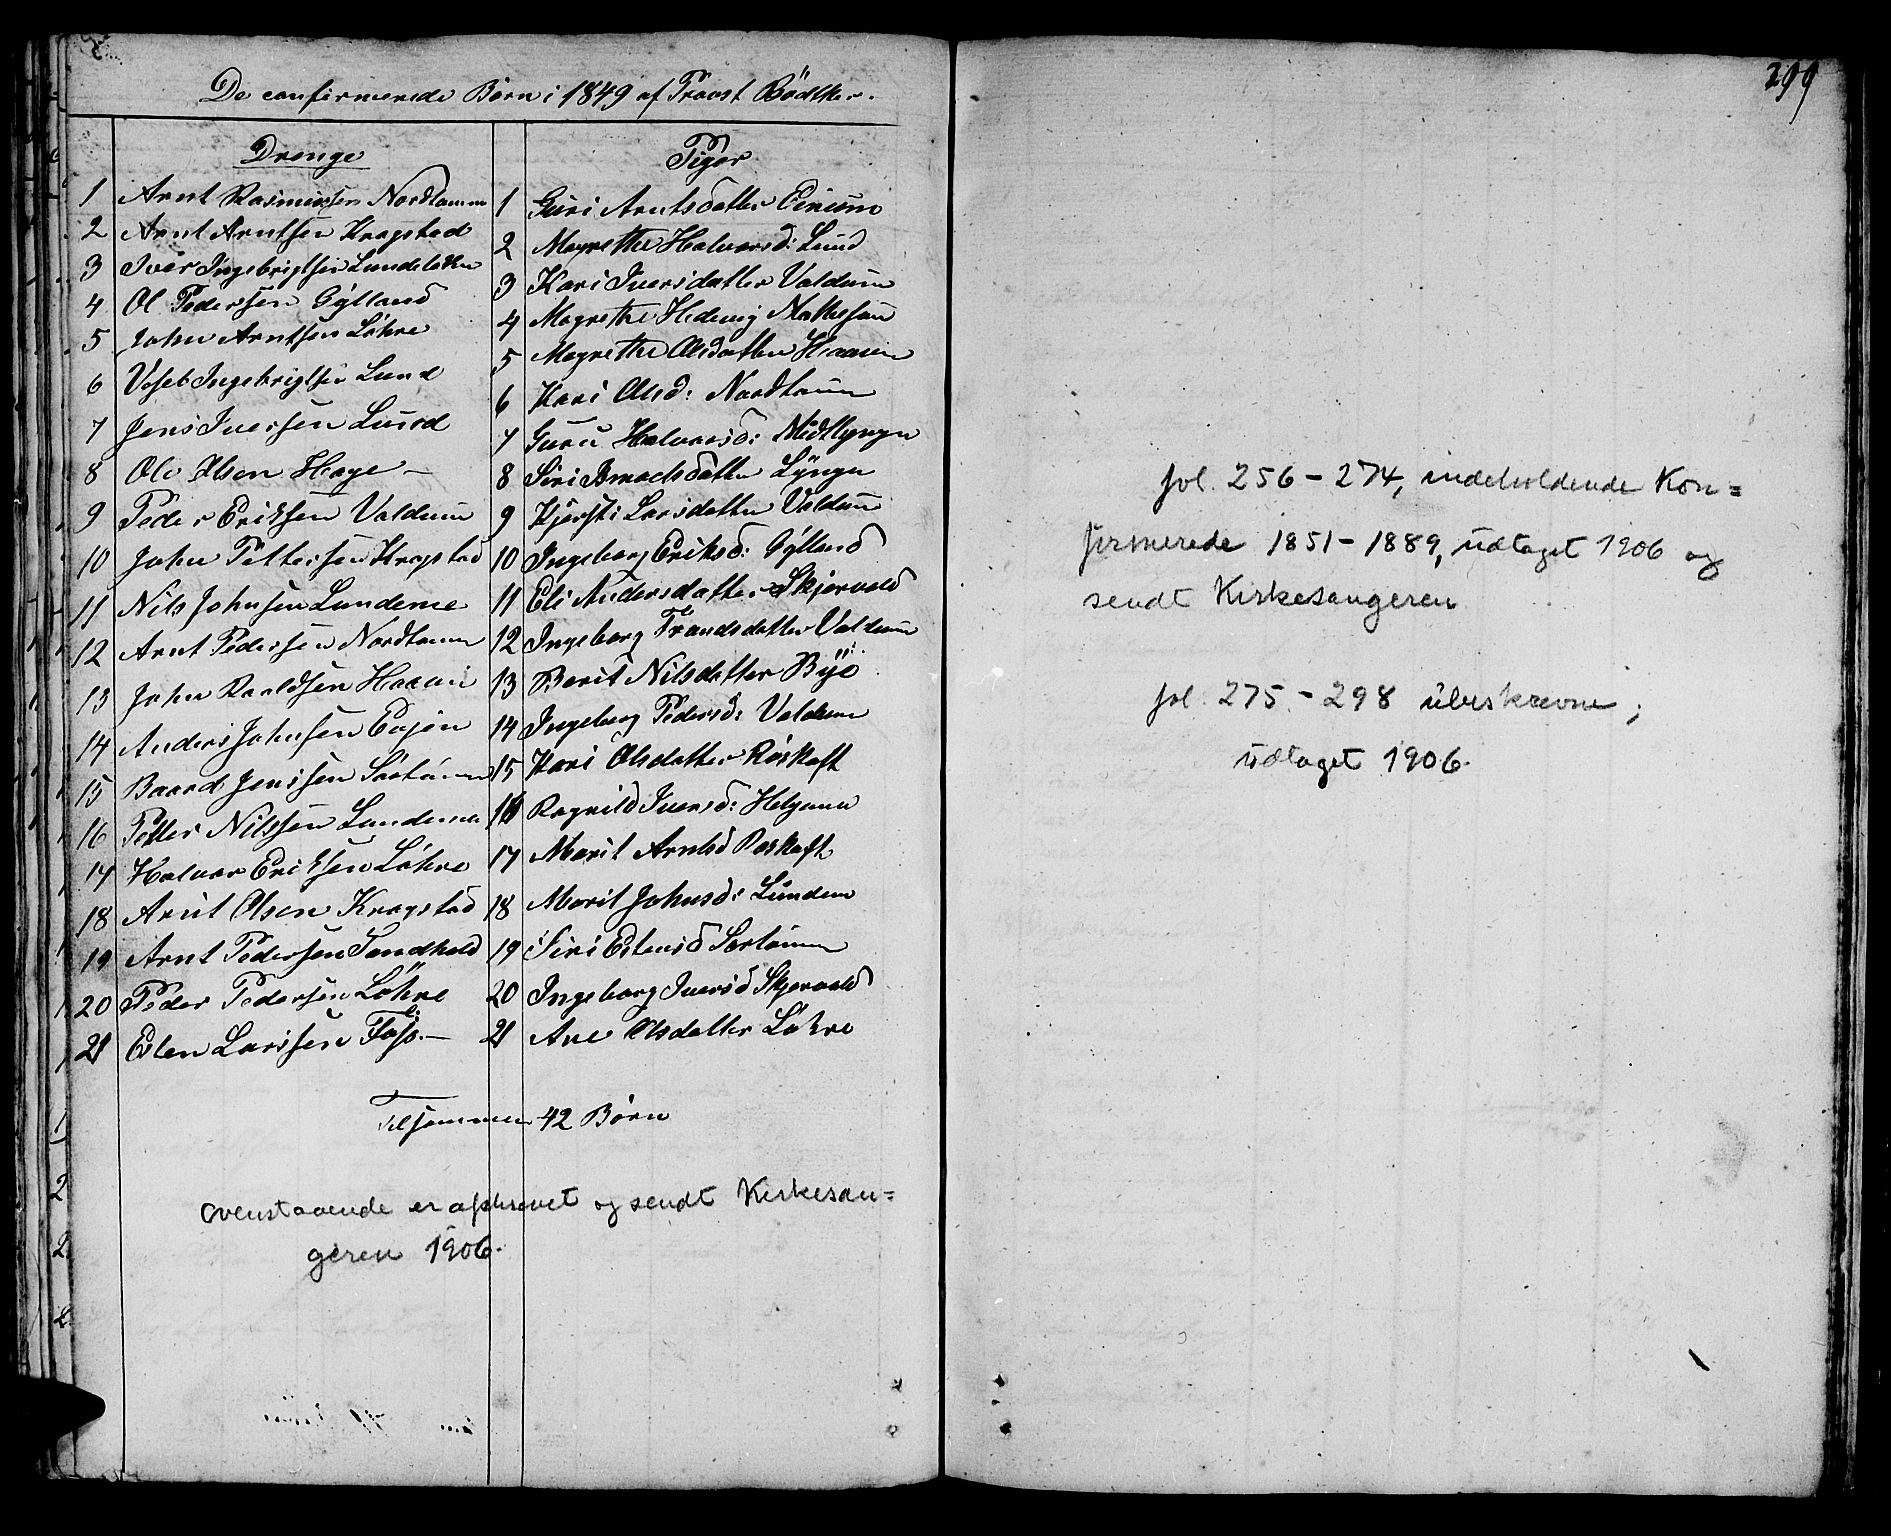 De confirmerede Børn i 1849 af Provst Bödtker.
Drenge
1 Arnt Rasmussen Nordtømme
2 Arnt Arntsen Kragstad
3 Iver Ingebrigtsen Lundeløkken
4 Ol Pedersen Gylland
5 John Arntsen Löhre
6 Ingebrigtsen Lund
7 Jens Iversen Lund
8 Ole Olsen Hage —
9 Peder Eriksen Valdum
10 John Pettersen Kragstad
11 Nils Johnsen Lundeme
12 Arnt Pedersen Nordtømme
13 John Haaen
14 Anders Johnsen
15 Baard Jenssen Sørtømme
16 Petter Nilssen Lundeme
17 Halvor Eriksen Löhre
18 Arnt Olsen Kragstad
19 Arnt Pedersen Sandhold
20 Peder Pedersen Löhre
21 Esten Larssen Foss. —
Piger
1 Guri Arntsdatter
2 Magrethe Halvorsd: Lund
3 Kari Iversdatter Valdum
4 Magrethe Hedevig Mathesen
5 Magrethe Olsdatter Haaen
6 Kari Olsd: Nordtømme
7 Guru Halvorsd: Midtlyngen
8 Siri Ismaelsdatter Lyngen
9 Kjersti Larsdatter Valdum
10 Ingeborg Eriksd: Gylland
11 Eli Andersdatter Skjervold
12 Ingeborg Trondsdatter Valdum
13 Berit Nilsdatter Bye
14 Ingeborg Pedersd: Valdum
15 Kari Olsdatter Röskaft
16 Ragnild Iversd: Helgemo
17 Marit Arntsd Røskaft
18 Marit Johnsd: Lundem
19 Siri Estensd Sørtømme
20 Ingeborg Iversd Skjervold
21 Ane Olsdatter Löhre
Tilsammen 42 Børn
Ovenstaaende er afskrevet og sendt Kirkesan=
geren 1906.
299
fol. 256 - 274, indeholdende Kon=
firmerede 1851 - 1889, udtaget 1906 og
sendt Kirkesangeren
fol. 275. - 298 ubeskrevne;
udtaget 1906.